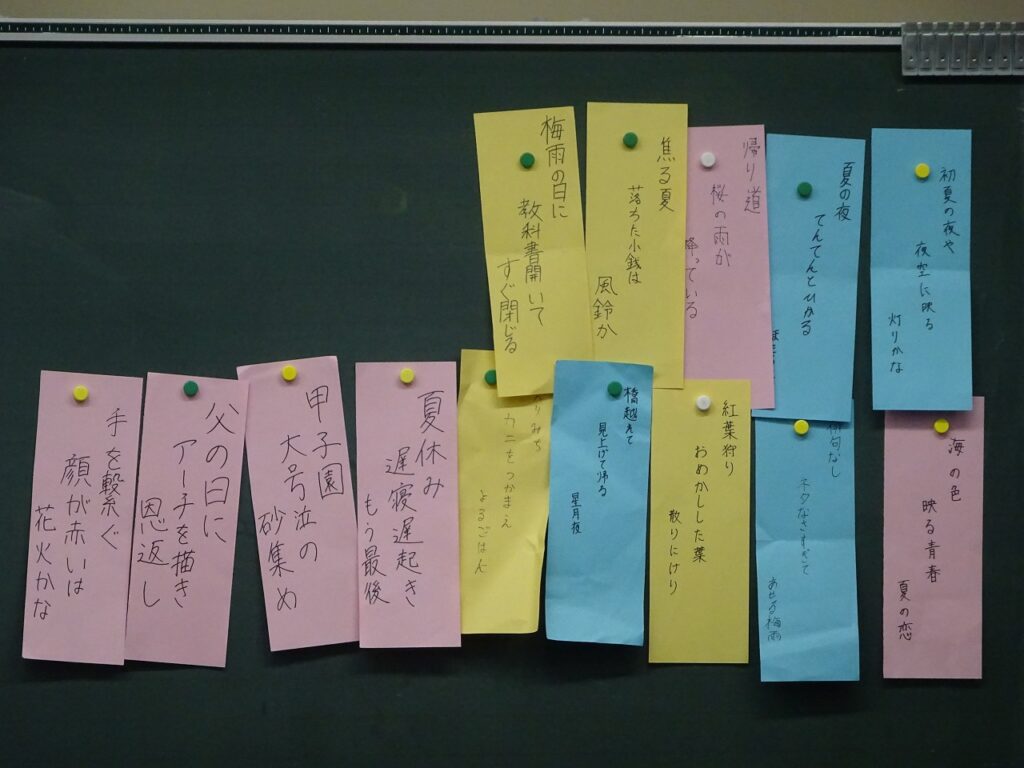 初夏の夜や
夜空に映る
灯りかな
夏の夜
てんてんとひかる
帰り道
桜の雨が
降っている
焦る夏
落ちた小銭は
風鈴か
梅雨の日に
教科書開いて
すぐ閉じる
海の色
映る青春
夏の恋
俳句なし
ネタなさすぎて
あせる梅雨
紅葉狩り
おめかしした葉
散りにけり
橋越えて
見上げて帰る
星月夜
りみち
カニをつかまえ
よるごはん
夏休み
遅寝遅起き
もう最後
甲子園
大号泣の
砂集め
父の日に
アー子を描き
恩返し
手を繋ぐ
顔が赤いは
花火かな